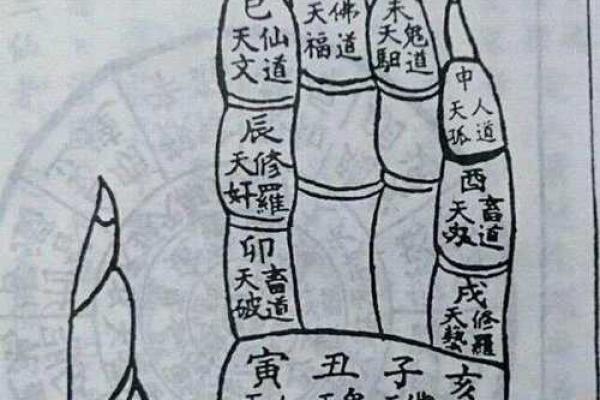 巳
天文
仙道
天福
佛道
未
天馹
鬼道
申
天孤
人道
辰
天奸
修羅
酉
天
畜道
卯
天破
畜道
戌
天藝
修羅
寅
丑
子
亥